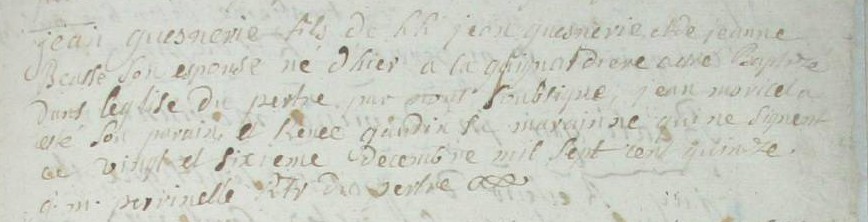 jean quesnerie fils de h h jean quesnerie et de jeanne
Beasse son espouse né d'hier a la a esté Baptizé
dans leglise du pertre par nous soubsigné, jean morice a
esté son parain et Renee gaudin sa marainne qui ne signent
ce vingt et sixieme Decembre mil sept cens quinze.
g. m. perrinelle Rtr du pertre